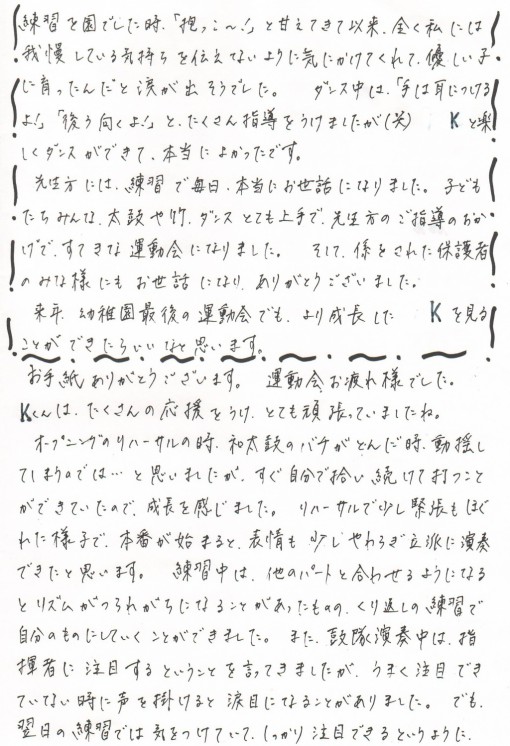 練習を園でした時、「抱っこ〜!」と甘えてきて以来、全く私には
我慢している気持ちを伝えてないように気にかけてくれて、優しい子
に育ったんだと涙が出そうでした。 ダンス中は、「手は耳につける
よ!」「後ろ向くよ!」と、たくさん指導をうけましたが(笑) Kと楽
しくダンスができて、本当によかったです。
先生方には、練習で毎日、本当にお世話になりました。子ども
たちみんな、太鼓や竹、ダンスとても上手で、先生方のご指導のおか
げで、すてきな運動会になりました。 そして、係をされた保護者
のみな様にもお世話になり、ありがとうございました。
来年、幼稚園最後の運動会でも、より成長した Kを見る
ことができたらいいなと思います。
お手紙ありがとうございます。 運動会お疲れ様でした。
Kくんは、たくさんの応援をうけ、とても頑張っていましたね。
オープニングのリハーサルの時、和太鼓のバチがとんだ時、動揺し
てしまうのでは…と思いましたが、すぐ自分で拾い続けて打つこと
ができていたので、成長を感じました。 リハーサルで少し緊張もほぐ
れた様子で、本番が始まると、表情も少しやわらぎ立派に演奏
できたと思います。 練習中は、他のパートと合わせるようになる
とリズムがつられがちになることがあったものの、くり返しの練習で
自分のものにしていくことができました。 また、鼓隊演奏中は、指
揮者に注目するということを言ってきましたが、うまく注目でき
ていない時に声を掛けると涙目になることがありました。 でも、
翌日の練習では気をつけていて、しっかり注目できるというように、